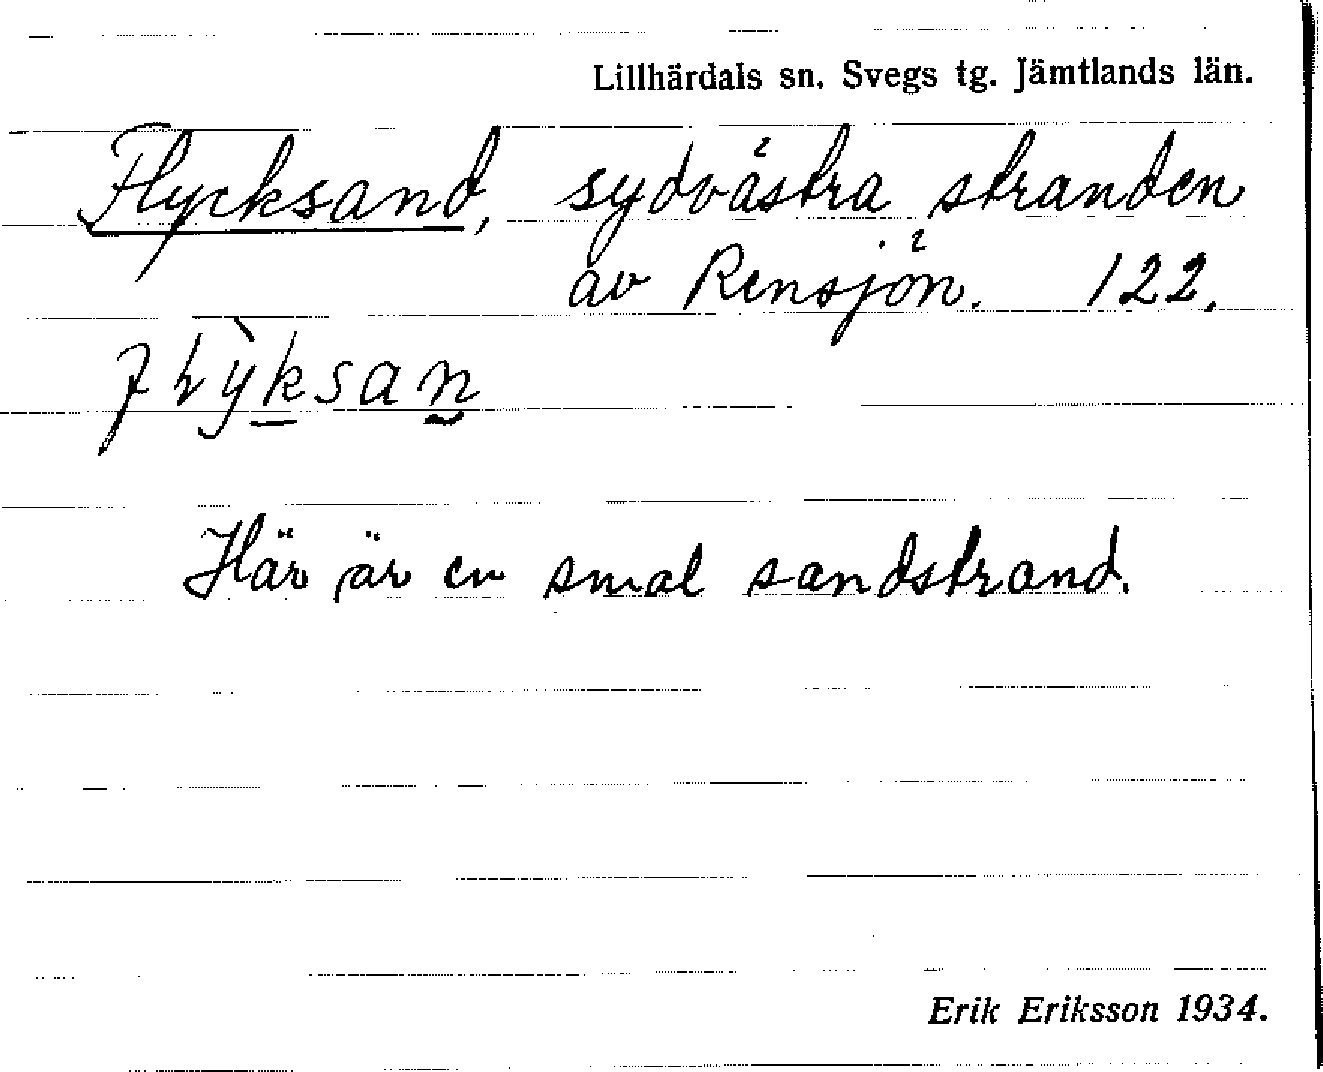 Lillhärdals sn. Svegs tg. Jämtlands län.
Flycksand, sydvästra stranden
av Rensjön. 122.
Här är en smal sandstrand.
Erik Eriksson 1934.